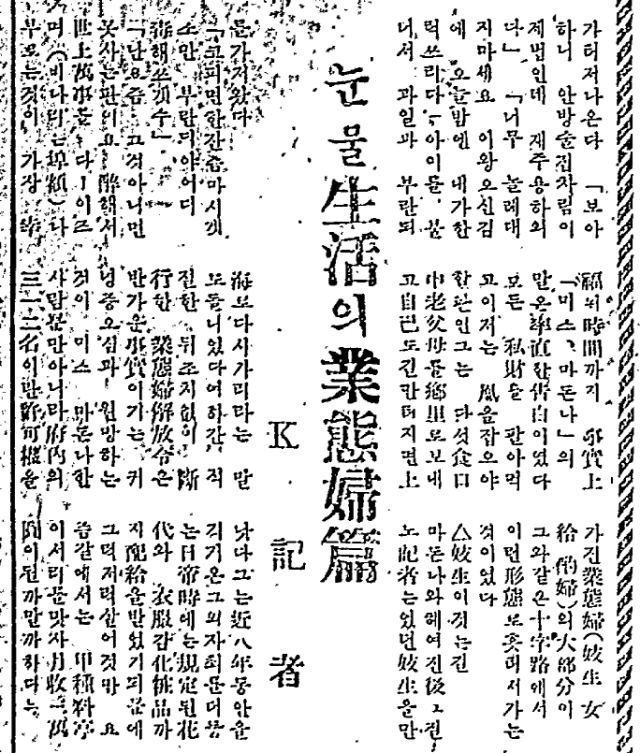 눈물 生活의 業態婦篇
K 記 者
가터저나온다 「보아
하니 안방술집차림이
제법인데 재주용하외
다」 「너무 놀래대
지마세요 이왕오신김
에 오늘밤엔 내가한
턱쓰리다」 아이들 불
너서 과일과 부란듸
를가저왔다
「코피면한잔좀마시겟
소만 부란듸아어듸
「단요즘 그것아니면
못사는판이요 醉해서
世上萬事를 다ー이즈
며 (비나리는埠頭)나
부르는것이 가장 幸
福의時間까지 事實上
「미스 마돈나」의
말은率直한告白이였다
모든 私財를 판아먹
고이저는 凰음잡으야
할판인그는 다섯食口
中老父母를鄕里로보내
고自己도긴만터지면上
海로다시가리라는 말
도들니있다여하간 적
절한 뒤조치없이 斷
行한 業態婦解放令은
반가운事實이기는 커
녕증오심과 원망하는
것이 미스 마돈나한
사람뿐만아니라府內의
三一二名이란許可權을
가진業態婦(妓生 女
給 酌婦)의大部分이
그와같은十字路에서
이런形態로쫏며서가는
것이였다
△妓生이것는긴
마돈나와헤여진後
노記者는있던妓生을만
낫다그는近八年동안을
는日帝時에는規定된花
代와 衣服감化粧品까
지配給을받었기때문에
그럭저럭살어것만 요
즘갈에서는 甲種料亭
이서리를맞자月收二萬
圓이된까말까하다는